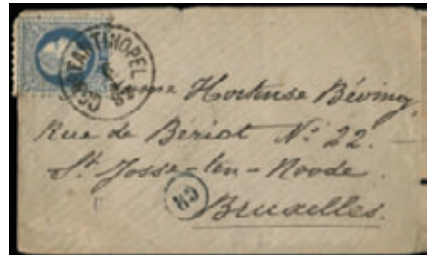 CONSTANTINOPEL
Hortense Béving
Rue de Bériot Nº 22.
St Josse-ten-Noode.
GR
Bruxelles.